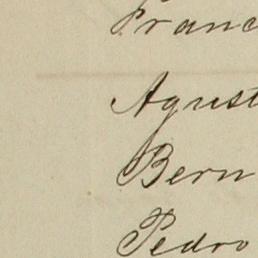 Franc
Agust
Bern
Pedro